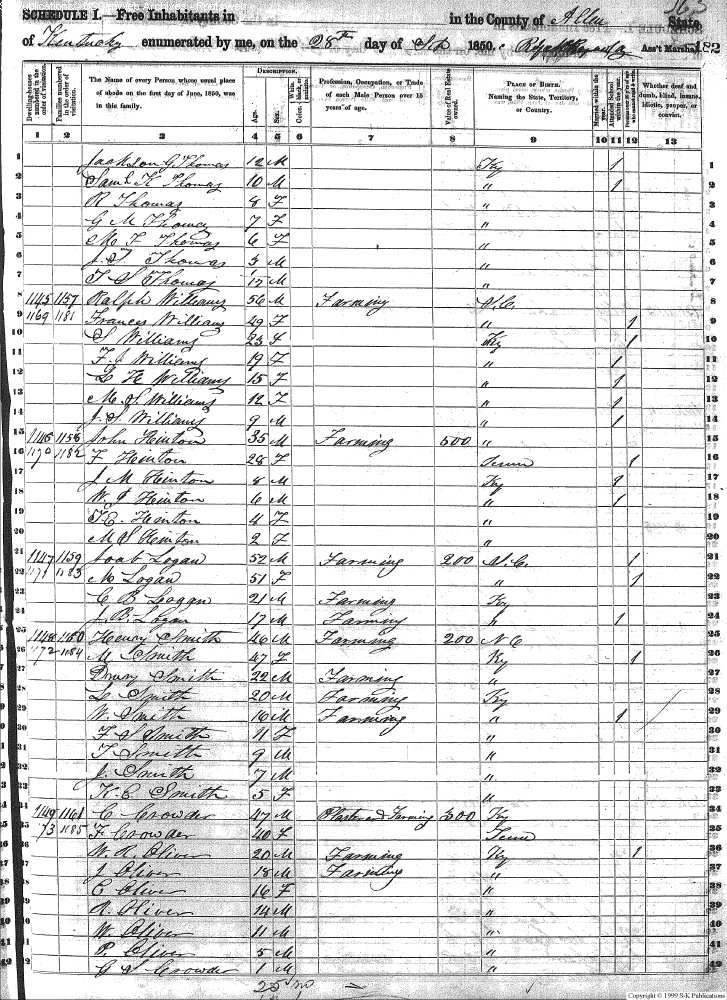 363
SCHEDULE I.—Free Inhabitants in in the County of Allen State
of Kentucky enumerated by me, on the 28th day of Sept 1850. Ass't Marshal. 182
Dwelling-houses numbered in the order of visitation.
Families numbered in the order of visitation.
The Name of every Person whose usual place of abode on the first day of June, 1850, was in this family.
DESCRIPTION.
Age.
Sex.
Color, White, black, or mulatto.
Profession, Occupation, or Trade of each Male Person over 15 years of age.
Value of Real Estate owned.
PLACE OF BIRTH. Naming the State, Territory, or Country.
Married within the year.
Attended School within the year.
Persons over 20 y'rs of age who cannot read & write.
Whether deaf and dumb, blind, insane, idiotic, pauper, or convict.
1 2 3 4 5 6 7 8 9 10 11 12 13
1 Jackson G Thomas 12 M Ky 1 1
2 Saml K Thomas 10 M " 1 2
3 R Thomas 8 F " 3
4 G M Thomas 7 F " 4
5 M F Thomas 6 F " 5
6 J T Thomas 3 M " 6
7 T S Thomas 1/12 M " 7
8 1145 1157 Ralph Williams 56 M Farming N.C. 8
9 1169 1181 Frances Williams 49 F " 1 9
10 S Williams 23 F Ky 1 10
11 F J Williams 19 F " 1 11
12 L H Williams 15 F " 1 12
13 M S Williams 12 F " 1 13
14 J S Williams 9 M " 1 14
15 1146 1158 John Hinton 35 M Farming 500 " 15
16 1170 1182 F Hinton 28 F Tenn 1 16
17 J M Hinton 8 M Ky 1 17
18 W J Hinton 6 M " 1 18
19 F E Hinton 4 F " 19
20 M S Hinton 2 F " 20
21 1147 1159 Joab Logan 52 M Farming 200 N.C. 1 21
22 1171 1183 M Logan 51 F " 1 22
23 C B Logan 21 M Farming Ky 23
24 J B Logan 17 M Farming " 1 24
25 1148 1160 Henry Smith 46 M Farming 200 N C 25
26 1172 1184 M Smith 47 F Ky 1 26
27 Drury Smith 22 M Farming " 27
28 L Smith 20 M Farming Ky 28
29 W. Smith 16 M Farming " 1 29
30 F S Smith 11 F " 30
31 T Smith 9 M " 31
32 J. Smith 7 M "
33 K E Smith 5 F "
34 1149 1161 C Crowder 47 M Plasterer & Farming 300 Ky 34
35 73 1185 F Crowder 40 F Tenn 35
36 W. R. Oliver 20 M Farming Ky 1 36
37 J Oliver 18 M Farming " 37
38 C Oliver 16 F " 38
R Oliver 14 M "
W Oliver 11 M "
41 P. Oliver 5 M " 41
42 G S Crowder 1 M "
Copyright © 1999 S-K Publications